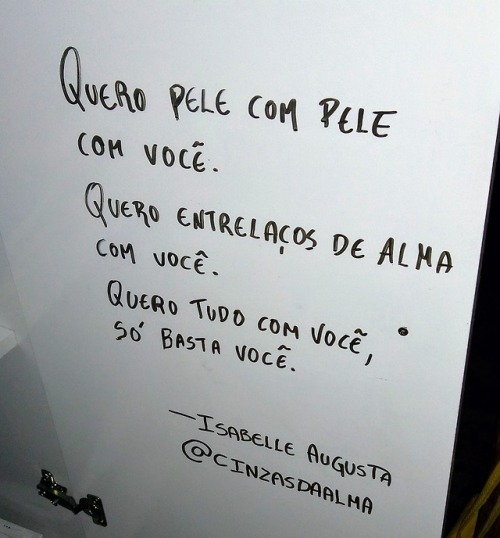 QUERO PELE COM PELE
COM VOCÊ.
QUERO ENTRELAÇOS DE ALMA
COM VOCÊ.
QUERO TUDO COM VOCÊ,
SÓ BASTA VOCÊ.
—ISABELLE AUGUSTA
@CINZASDAALMA